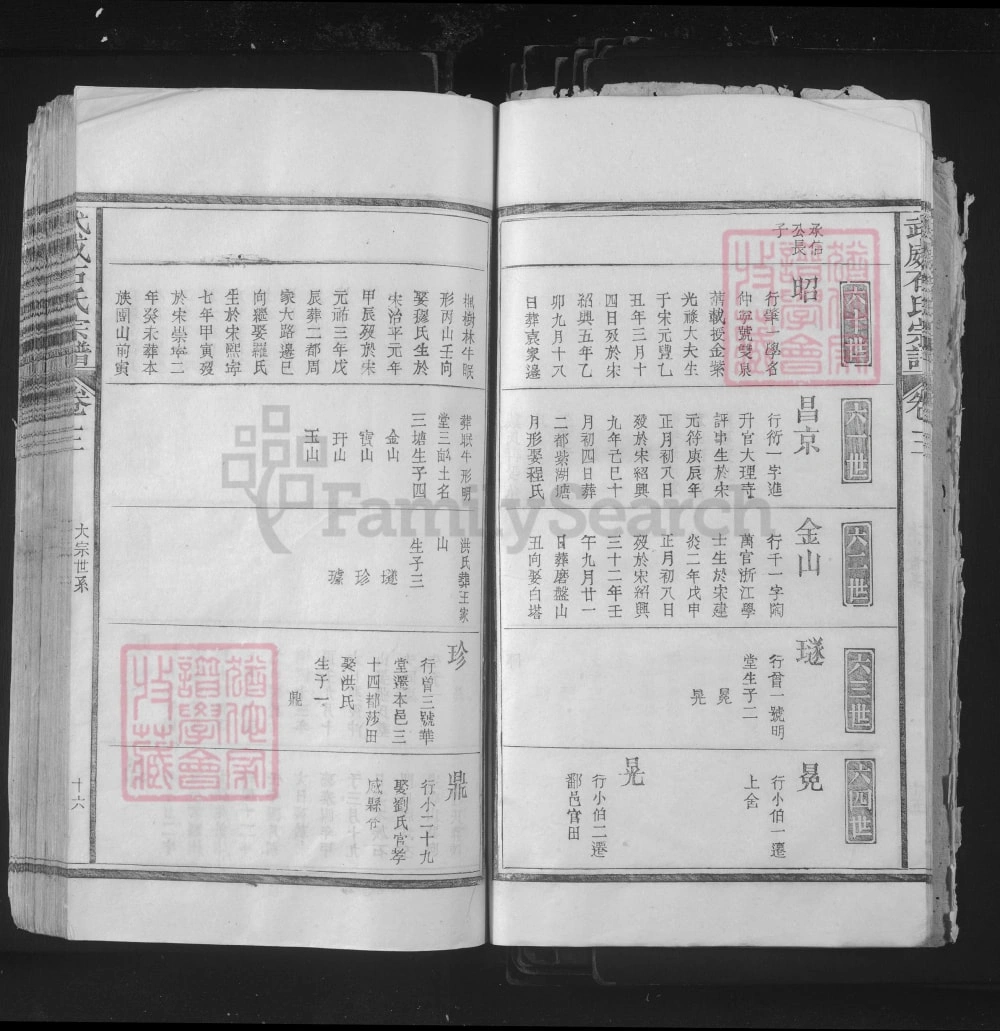 武威石氏宗譜
卷三
六十世
承信
公長
子
昭
行肇一學名
仲寧號雙泉
蔭載授金紫
光祿大夫生
于宋元豐乙
丑年三月十
四日歿於宋
紹興五年乙
卯九月十八
日葬袁家邊
楓樹林牛眠
形丙山壬向
娶穆氏生於
宋治平元年
甲辰歿於宋
元祐三年戊
辰葬二都周
家大路邊巳
向繼娶羅氏
生於宋熙寧
七年甲寅歿
於宋崇寧二
年癸未葬本
族團山前寅
六一世
昌京
行衍一字進
升官大理寺
評事生於宋
元符庚辰年
正月初八日
歿於宋紹興
九年己巳十
月初四日葬
二都紫湖塘
月形娶程氏
葬眠牛形明
堂三畝土名
三塘生子四
金山
寶山
玗山
玉山
六二世
金山
行千一字閎
萬官浙江學
士生於宋建
炎二年戊申
正月初八日
歿於宋紹興
三十二年壬
午九月廿一
日葬磨盤山
丑向娶白塔
洪氏葬王家
山
生子三
璲
珍
璩
六三世
璲
行曾一號明
堂生子二
晃
晃
珍
行曾三號華
堂遷本邑三
十四都莎田
娶洪氏
生子一
鼎
六四世
晃
行小伯一遷
上舍
晃
行小伯二遷
鄱邑官田
鼎
行小二十九
娶劉氏官孝
感縣令
武威石氏宗譜
卷三
大宗世系
十六
FamilySearch